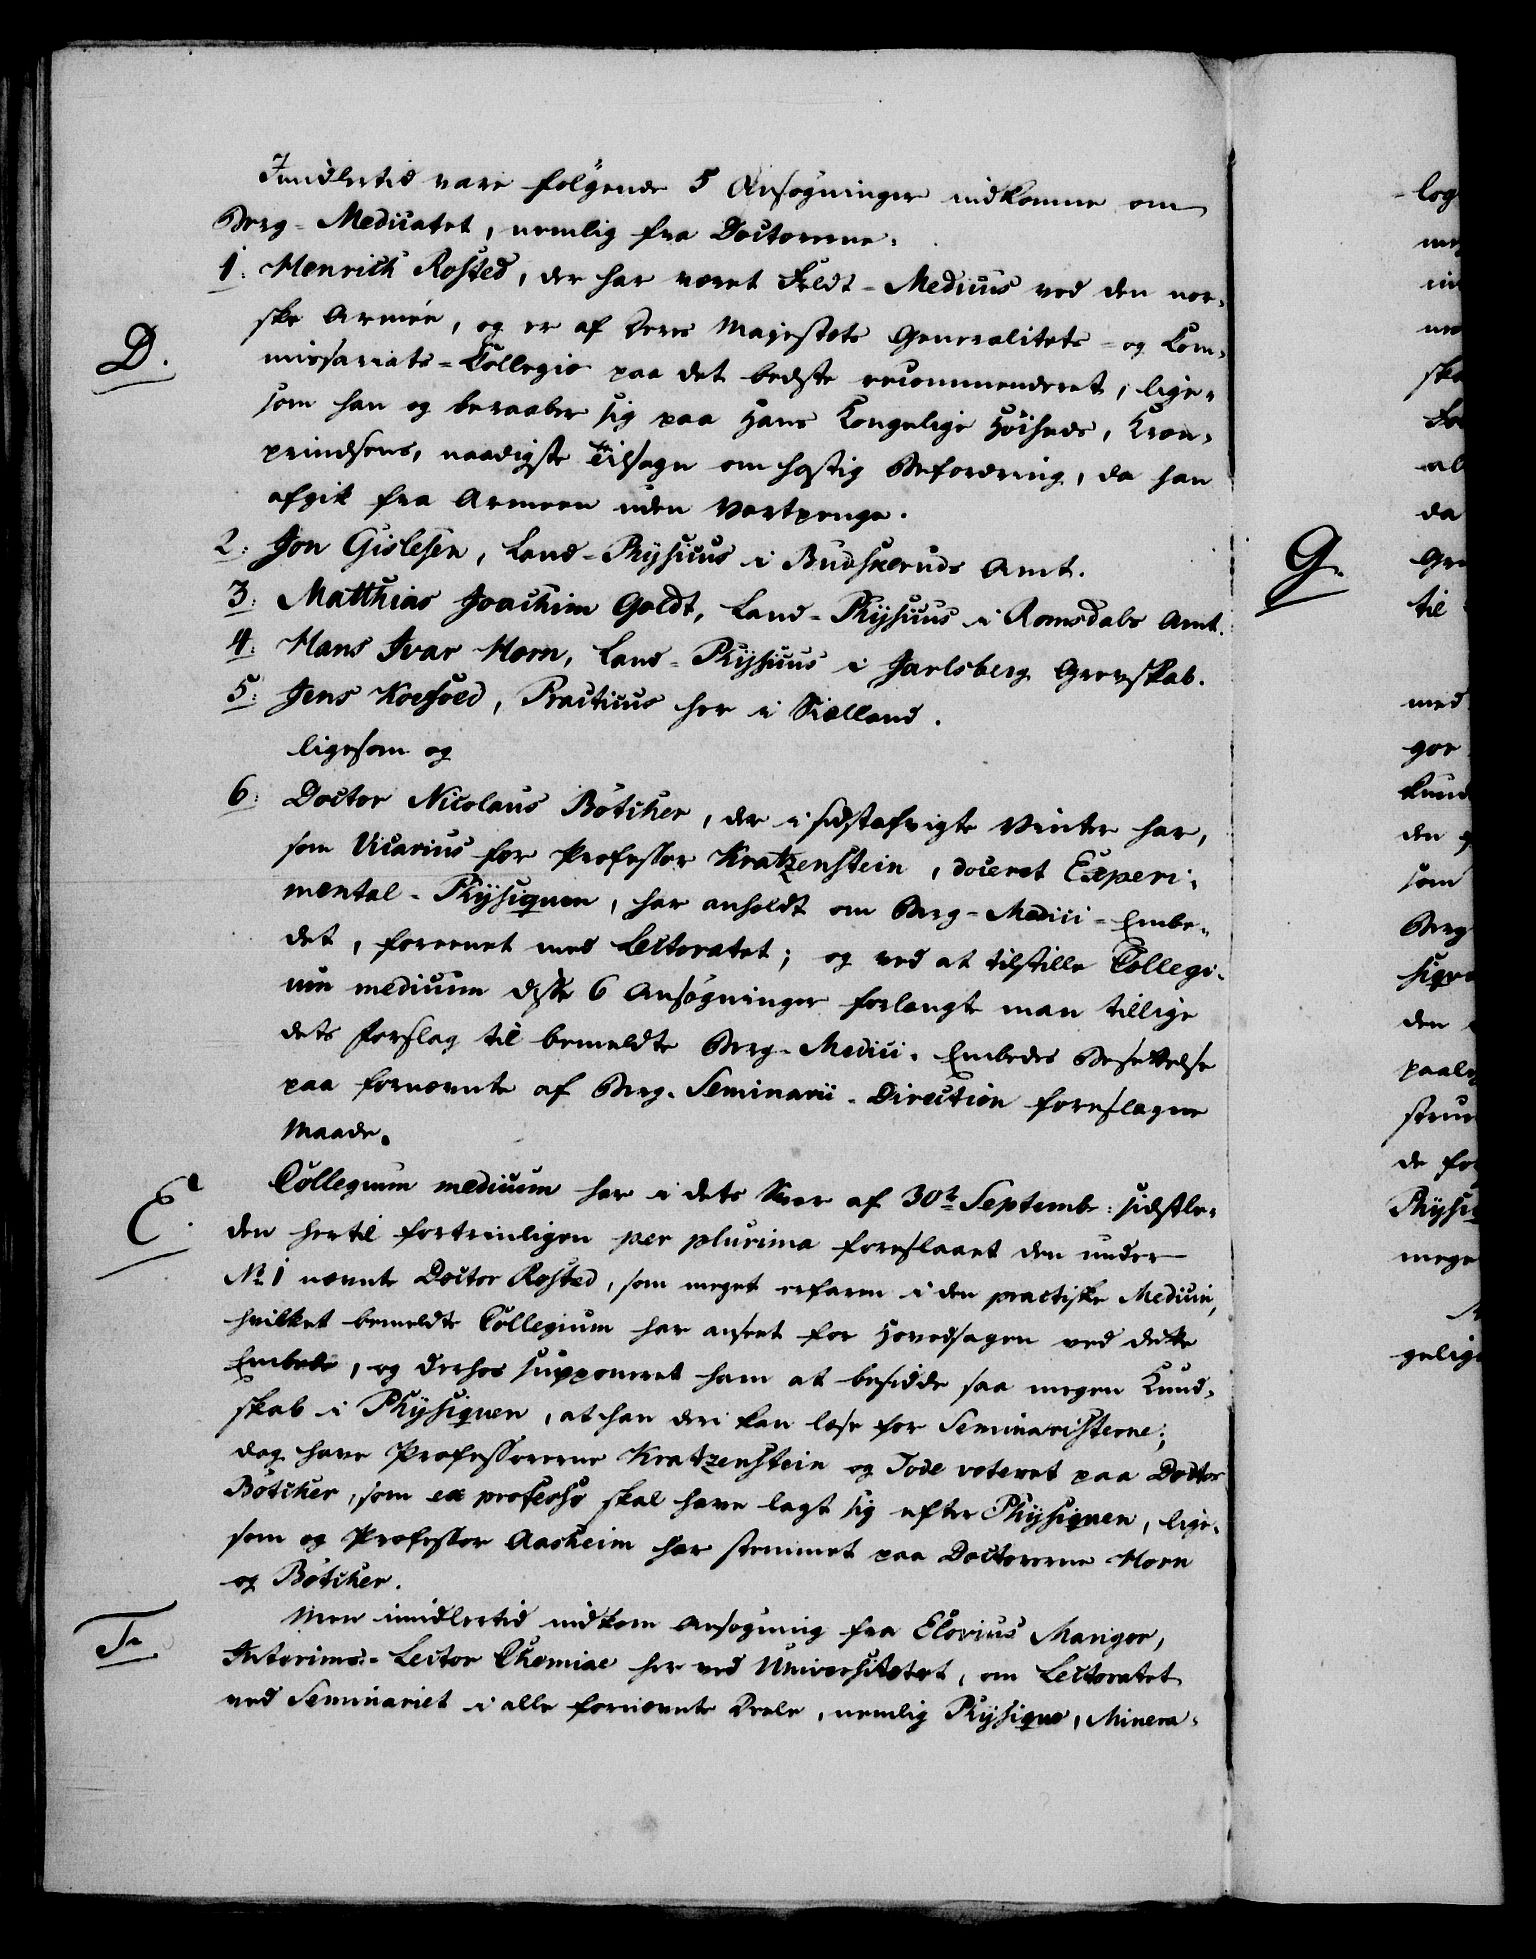 Imidlertid vare følgende 5 Ansøgninger indkomne om
Berg-Medicatet, nemlig fra Doctorerne.
1. Henrich Rosted, der har været Feldt-Medicus ved den nor-
D.
ske Armée, og er af Deres Majestæts Generalitets- og Com-
missariats-Collegio paa det bedste recommenderet, lige-
som han og beraaber sig paa Hans Kongelige Høiheds, Cron-
prindsens, naadigste Tilsagn om hastig Befordring, da han
afgik fra Armeen uden Vartpenge.
2. Jon Gislesen, Land-Physicus i Budskeruds Amt.
3. Matthias Joachim Goldt, Land-Physicus i Romsdals Amt.
4. Hans Ivar Horn, Land-Physicus i Jarlsberg Grevskab.
5. Jens Koefoed, Practicus her i Siælland.
ligesom og
6. Doctor Nicolaus Bötcher, der i sidstafvigte Vinter har,
som Vicarius for Professor Kratzenstein, doceret Experi-
mental-Physiquen, har anholdt om Berg-Medici-Embe-
det, foreenet med Lectoratet; og ved at tilstille Collegi-
um medicum disse 6 Ansøgninger forlangte man tillige
dets Forslag til bemeldte Berg-Medici-Embedes Besættelse
paa fornævnte af Berg-Seminarii-Direction foreslagne
Maade.
E.
Collegium medicum har i dets Svar af 30te Septembr: sidstle-
den hertil fortrinligen per plurima foreslaaet den under
No 1 nævnte Doctor Rosted, som meget erfaren i den practiske Medicin,
hvilket bemeldte Collegium har anseet for Hovedsagen ved dette
Embede, og derhos supponeret ham at besidde saa megen Kund-
skab i Physiquen, at han deri kan læse for Seminaristerne;
dog have Professorerne Kratzenstein og Tode voteret paa Doctor
Bötcher, som ex professo skal have lagt sig efter Physiquen, lige-
som og Professor Aasheim har stemmet paa Doctorerne Horn
og Bötcher.
F.
Men imidlertid indkom Ansøgning fra Elovius Mangor,
Interims-Lector Chemiae her ved Universitetet, om Lectoratet
ved Seminariet i alle fornævnte Deele, nemlig Physique, Minera-
G.
log
ska
da
til
med
den
som
Berg
den
paale
de for
mege
gelig